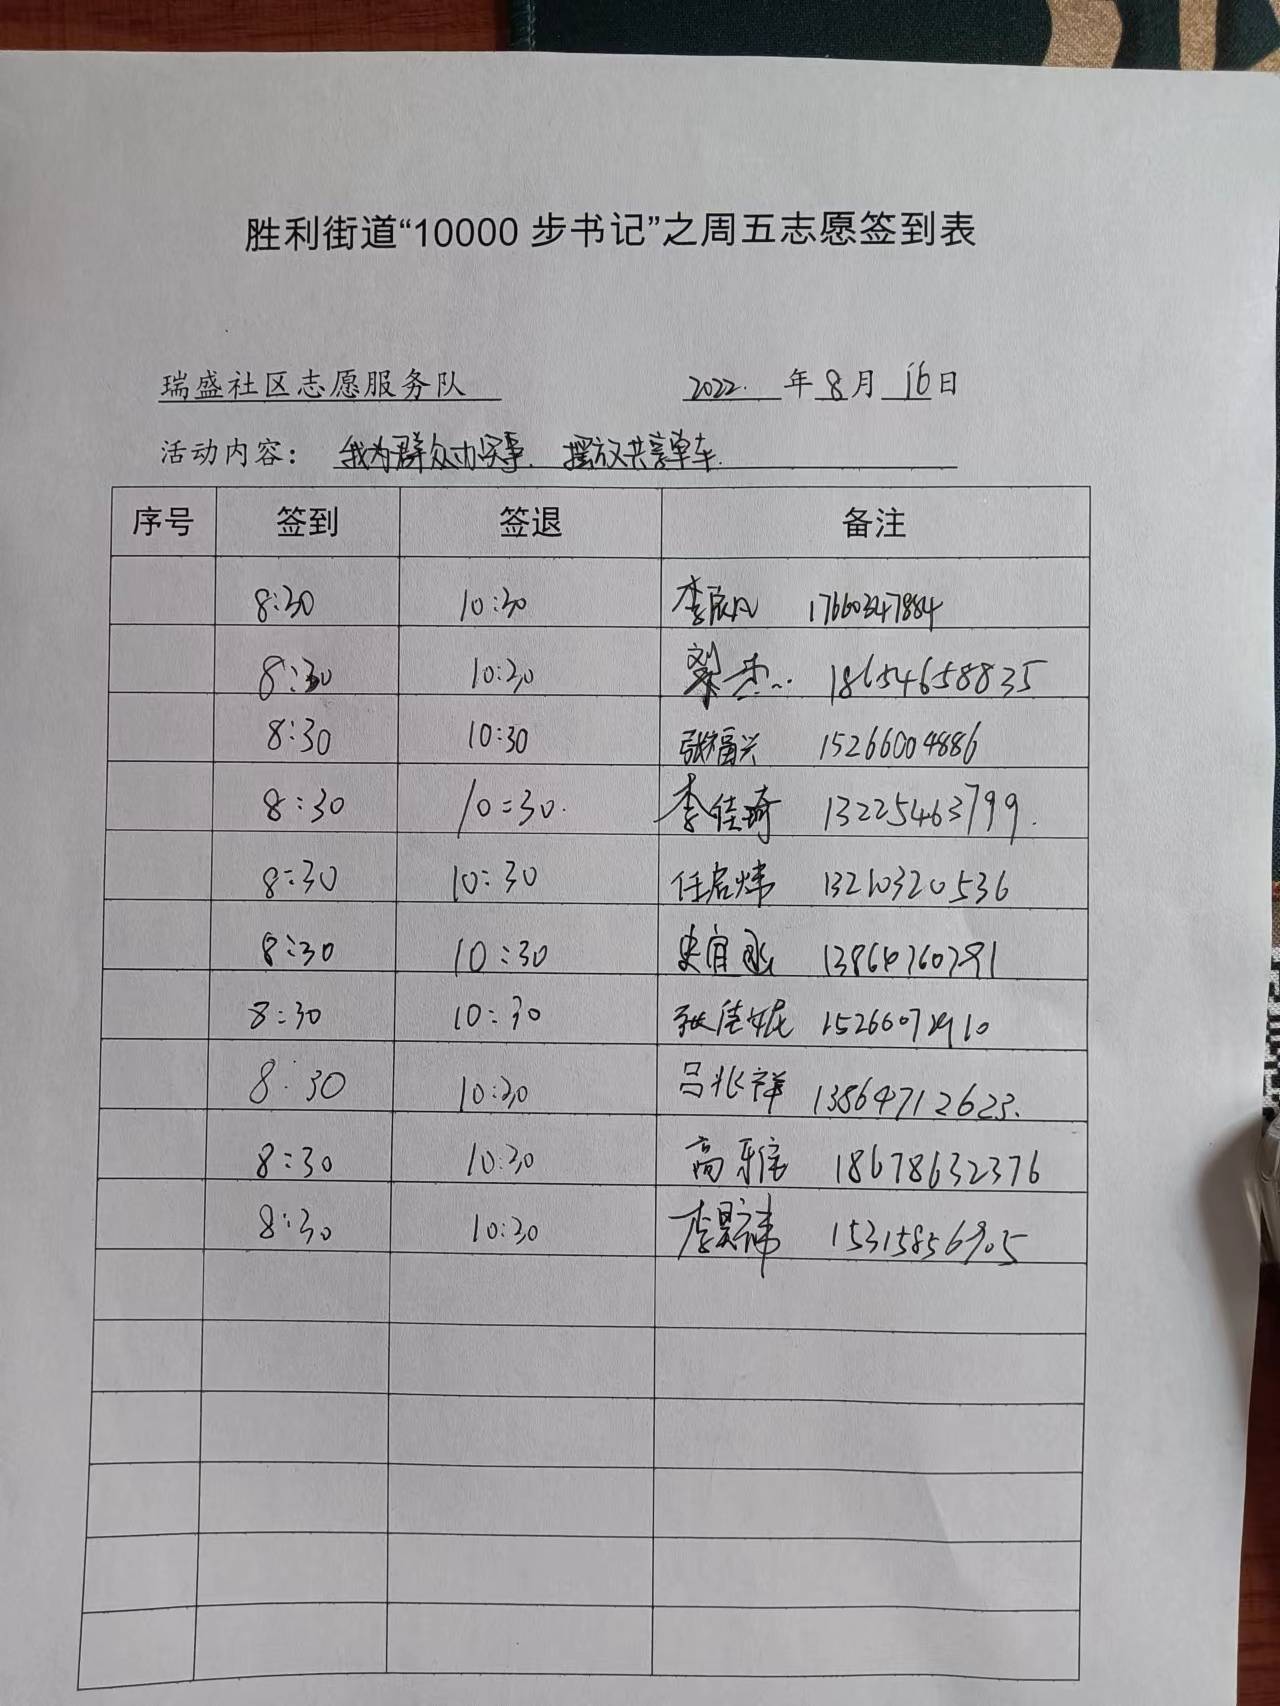 胜利街道“10000 步书记”之周五志愿签到表
瑞盛社区志愿服务队 2022. 年 8 月 16 日
活动内容： 我为群众办实事. 摆放共享单车.
序号 签到 签退 备注
8:30 10:30 李辰凡 17660347884
8:30 10:30 18654658835
8:30 10:30 张福兴 15266004886
8:30 10:30. 李佳琦 13225463799.
8:30 10:30 任启炜 13210320536
8:30 10:30 史宜
8:30 10:30 张佳妮
8:30 10:30 吕兆祥 13864712623.
8:30 10:30 高雅 18678632376
8:30 10:30 李昊祎 15315856905